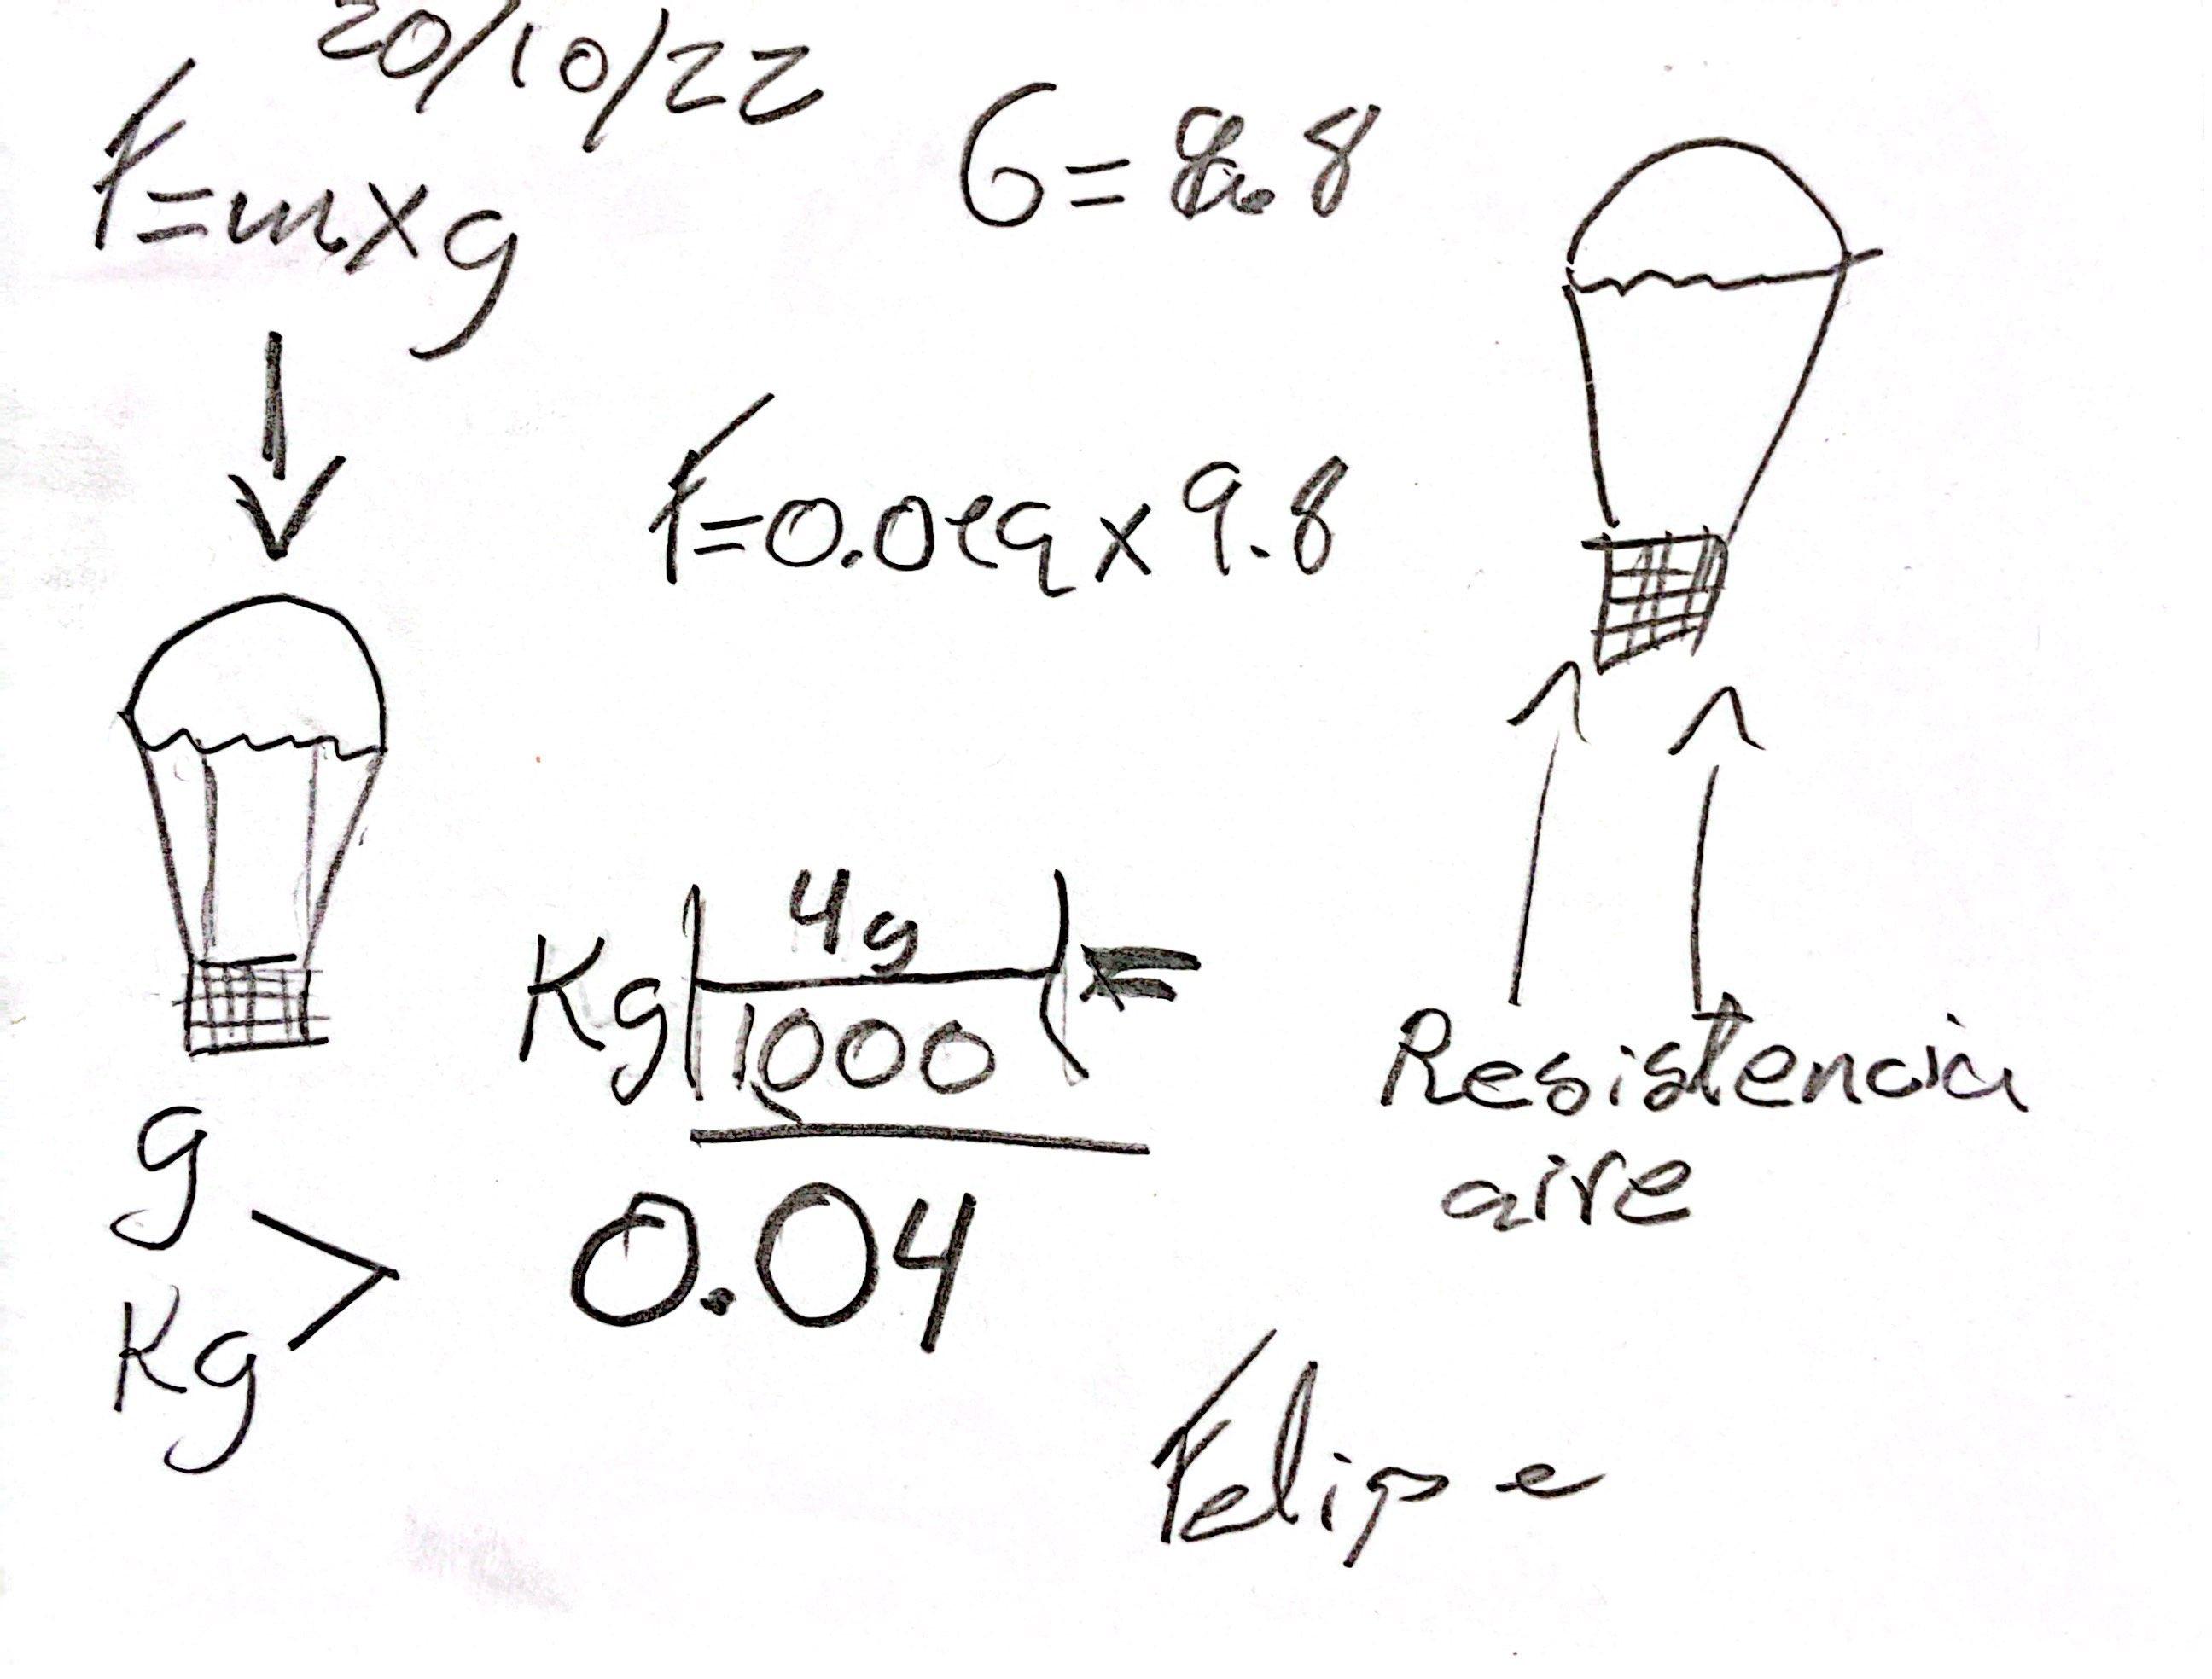 20/10/22
F=mxg
G= 9.8
F=0.0 x 9.8
Kg 4g =
1000
0.04
g
Kg >
Resistencia
aire
Felipe